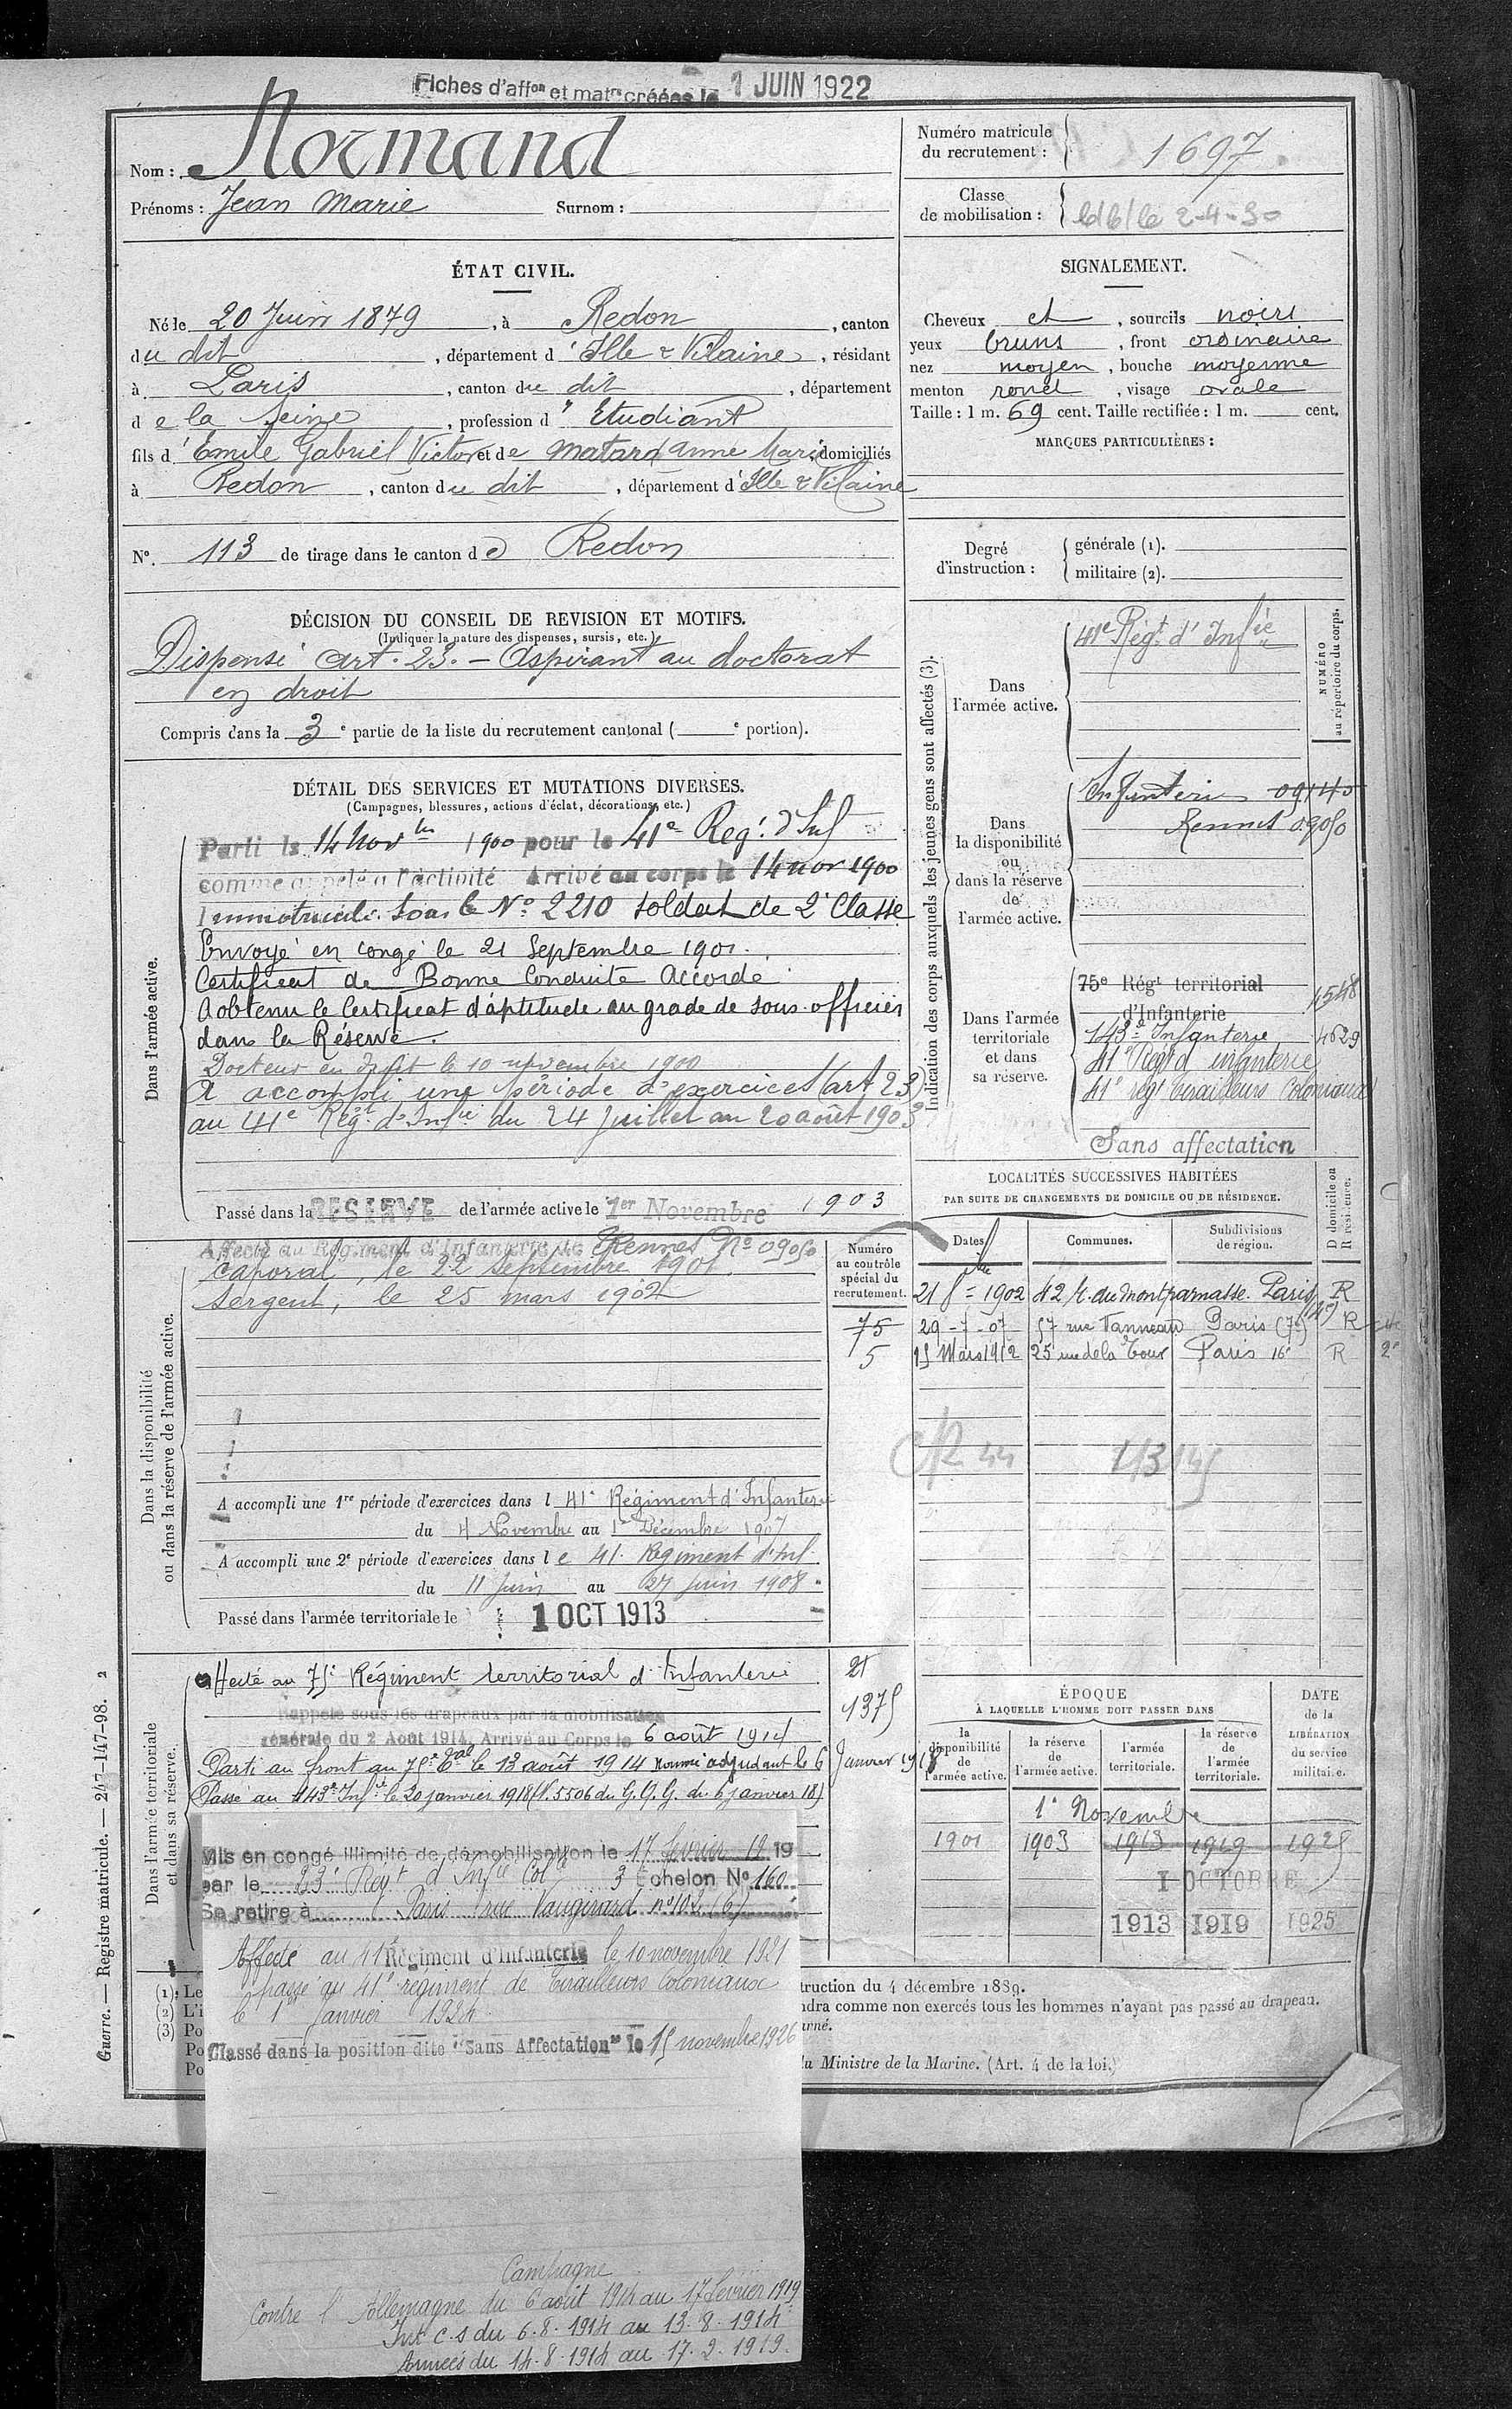 Fiches d'affon et matr créées le 1 JUIN 1922
Nom : Normand
Prénoms : Jean Marie Surnom :
Numéro matricule du recrutement : 1697
Classe de mobilisation : le 2-4-30
ÉTAT CIVIL.
Né le 20 Juin 1879, à Redon, canton
du dit, département d'Ille & Vilaine, résidant
à Paris, canton du dit, département
de la Seine, profession d'Etudiant
fils d'Emile Gabriel Victor et de Matard Anne Marie, domiciliés
à Redon, canton du dit, département d'Ille & Vilaine
N° 113 de tirage dans le canton de Redon
SIGNALEMENT.
Cheveux et, sourcils noirs
yeux bruns, front ordinaire
nez moyen, bouche moyenne
menton rond, visage ovale
Taille : 1 m. 69 cent. Taille rectifiée : 1 m. cent.
MARQUES PARTICULIÈRES :
Degré d'instruction : générale (1).
militaire (2).
DÉCISION DU CONSEIL DE REVISION ET MOTIFS.
(Indiquer la nature des dispenses, sursis, etc.)
Dispensé art. 23. - Aspirant au doctorat
en droit
Compris dans la 3e partie de la liste du recrutement cantonal ( e portion).
DÉTAIL DES SERVICES ET MUTATIONS DIVERSES.
(Campagnes, blessures, actions d'éclat, décorations, etc.)
Dans l'armée active.
Parti le 14 Novbre 1900 pour le 41e Reg. d'Inf
comme appelé à l'activité Arrivé au corps le 14 nov 1900
Immatriculé sous le N° 2210 soldat de 2e Classe
Envoyé en congé le 21 Septembre 1901.
Certificat de Bonne Conduite Accordé
A obtenu le Certificat d'aptitude au grade de sous-officier
dans la Réserve.
Docteur en droit le 10 novembre 1900
A accompli une période d'exercices (art 23)
au 41e Régt d'Infie du 24 Juillet au 20 août 1903
Passé dans la RESERVE de l'armée active le 1er Novembre 1903
Dans la disponibilité
ou dans la réserve de l'armée active.
Affecté au Régiment d'Infanterie de Rennes N° 09050
Caporal, le 22 septembre 1901
Sergent, le 25 mars 1902
A accompli une 1re période d'exercices dans l 41e Régiment d'Infanterie
du 4 Novembre au 1er Décembre 1907
A accompli une 2e période d'exercices dans le 41. Régiment d'Inf.
du 11 Juin au 27 juin 1908.
Passé dans l'armée territoriale le 1 OCT 1913
Numéro au contrôle spécial du recrutement.
75
5
Dans l'armée territoriale
et dans sa réserve.
Affecté au 75e Régiment territorial d'Infanterie
21
1375
Rappelé sous les drapeaux par la mobilisation
générale du 2 Août 1914. Arrivé au Corps le 6 août 1914
Parti au front au 75e tal le 13 août 1914 Nommé adjudant le 6 Janvier 1918
Passé au 143e Infie le 20 janvier 1918 (N. 5506 du G.Q.G. du 6 janvier 18)
Mis en congé illimité de démobilisation le 17 février 1919
par le 23e Régt d'Infie Colle 3e Echelon N° 160
Se retire à Paris rue Vaugirard n° 102 (6)
Affecté au 41e Régiment d'Infanterie le 10 novembre 1921
passé au 41e régiment de Tirailleurs Coloniaux
le 1er Janvier 1924.
Classé dans la position dite "Sans Affectation" le 15 novembre 1926
Campagne
Contre l'Allemagne du 6 août 1914 au 17 février 1919
Int c.s du 6.8.1914 au 13.8.1914
Armées du 14.8.1914 au 17.2.1919.
Indication des corps auxquels les jeunes gens sont affectés (3).
NUMÉRO au répertoire du corps.
Dans l'armée active.
41e Régt d'Infie
Dans la disponibilité ou dans la réserve de l'armée active.
Infanterie 09145
Rennes 09050
Dans l'armée territoriale et dans sa réserve.
75e Régt territorial d'Infanterie 4548
143e Infanterie 4629
41e Régt d'infanterie
41e régt tirailleurs Coloniaux
Sans affectation
LOCALITÉS SUCCESSIVES HABITÉES
PAR SUITE DE CHANGEMENTS DE DOMICILE OU DE RÉSIDENCE.
Dates. Communes. Subdivisions de région. D domicile ou R résidence.
21 8bre 1902 42 r. du Montparnasse. Paris (14e) R
29-7-07 57 rue Vanneau Paris (7e) R
15 Mars 1912 25 rue de la Tour Paris 16e R 2e
CR 44
ÉPOQUE
À LAQUELLE L'HOMME DOIT PASSER DANS
DATE de la LIBÉRATION du service militaire.
la disponibilité de l'armée active. la réserve de l'armée active. l'armée territoriale. la réserve de l'armée territoriale.
1er Novembre
1901 1903 1913 1919 1925
1 OCTOBRE
1913 1919 1925
(1) Le
(2) L'i
(3) Po
Po
Po
truction du 4 décembre 1889.
ndra comme non exercés tous les hommes n'ayant pas passé au drapeau.
urné.
du Ministre de la Marine. (Art. 4 de la loi.)
Guerre. — Registre matricule. — 247-147-98. 2